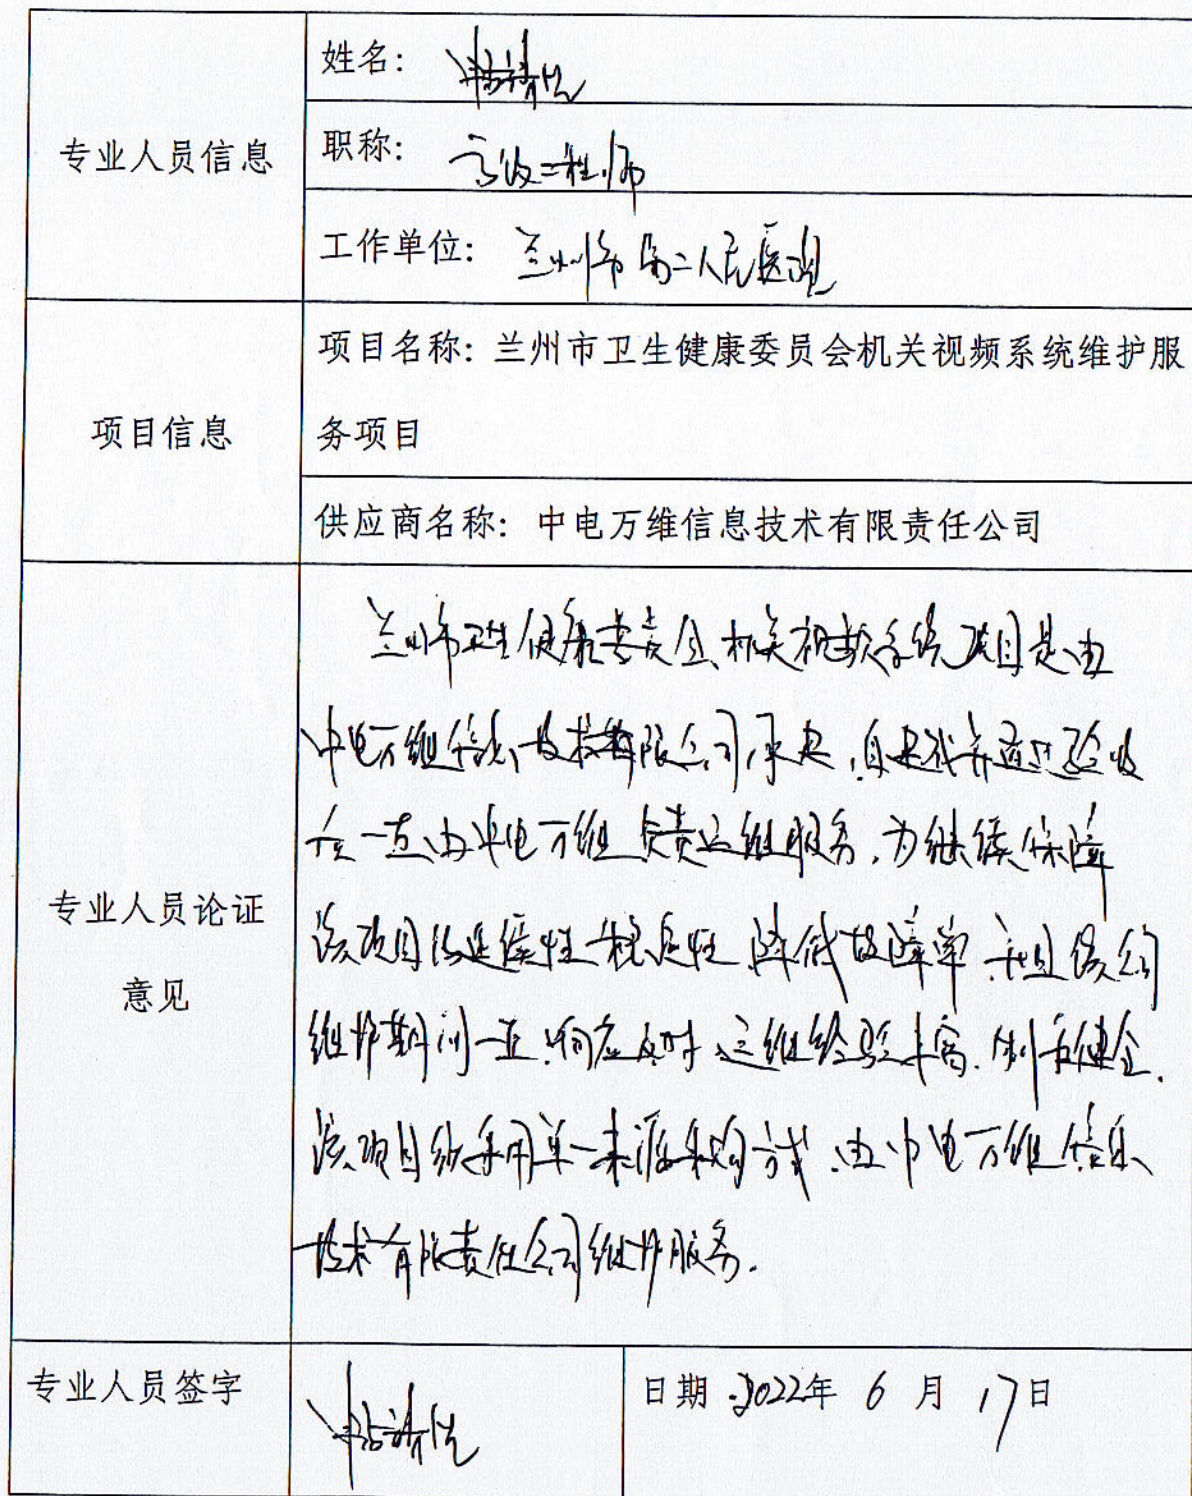 专业人员信息
姓名：
职称：高级工程师
工作单位：兰州市第二人民医院
项目信息
项目名称：兰州市卫生健康委员会机关视频系统维护服
务项目
供应商名称：中电万维信息技术有限责任公司
专业人员论证
意见
兰州市卫生健康委员会机关视频系统项目是由
中电万维信息技术有限公司承建，自建成并通过验收
后一直由中电万维负责运维服务，为继续保障
该项目的延续性稳定性，降低故障率，并且该公司
维护期间一直响应及时、运维经验丰富，制度健全，
该项目采用单一来源采购方式，由中电万维信息
技术有限责任公司维护服务。
专业人员签字
日期：2022年 6 月 17日